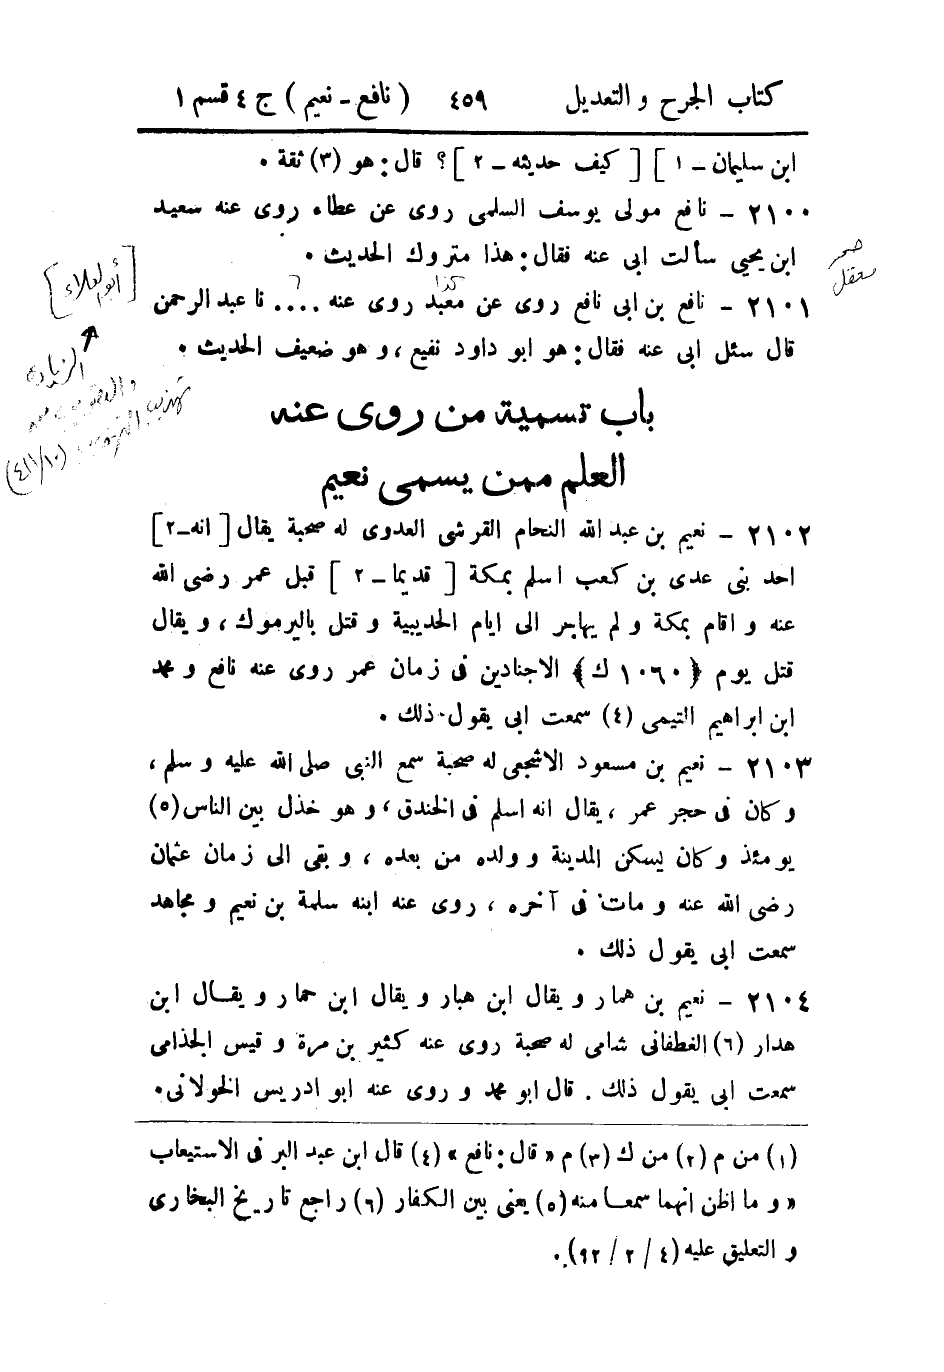 كتاب الجرح و التعديل ٤٥٩ ( نافع ـ نعيم ) ج ٤ قسم ١
ابن سليمان ـ ١ ] [ كيف حديثه ـ ٢ ] ؟ قال : هو (٣) ثقة ٠
٢١٠٠ - نافع مولى يوسف السلمى روى عن عطاء روى عنه سعيد
ابن يحيى سألت ابى عنه فقال : هذا متروك الحديث ٠
صحر
معقل
كذا
[أبو العلاء]
٢١٠١ - نافع بن ابى نافع روى عن معبد روى عنه .... نا عبد الرحمن
قال سئل ابى عنه فقال : هو ابو داود نفيع ، و هو ضعيف الحديث ٠
الزيادة
تهذيب التهذيب
(٤١١/١٠)
باب تسمية من روى عنه
العلم ممن يسمى نعيم
٢١٠٢ - نعيم بن عبد الله النحام القرشى العدوى له صحبة يقال [ انه ـ ٢ ]
احد بنى عدى بن كعب اسلم بمكة [ قديما ـ ٢ ] قبل عمر رضى الله
عنه و اقام بمكة و لم يهاجر الى ايام الحديبية و قتل باليرموك ، و يقال
قتل يوم ﴿ ١٠٦٠ ك ﴾ الاجنادين فى زمان عمر روى عنه نافع و محمد
ابن ابراهيم التيمى (٤) سمعت ابى يقول ذلك ٠
٢١٠٣ - نعيم بن مسعود الاشجعى له صحبة سمع النبى صلى الله عليه و سلم ،
و كان فى حجر عمر ، يقال انه اسلم فى الخندق ، و هو خذل بين الناس (٥)
يومئذ و كان يسكن المدينة و ولده من بعده ، و بقى الى زمان عثمان
رضى الله عنه و مات فى آخره ، روى عنه ابنه سلمة بن نعيم و مجاهد
سمعت ابى يقول ذلك ٠
٢١٠٤ - نعيم بن همار و يقال ابن هبار و يقال ابن حمار و يقال ابن
هدار (٦) الغطفانى شامى له صحبة روى عنه كثير بن مرة و قيس الجذامى
سمعت ابى يقول ذلك . قال ابو محمد و روى عنه ابو ادريس الخولانى ٠
(١) من م (٢) من ك (٣) م « قال : نافع » (٤) قال ابن عبد البر فى الاستيعاب
« و ما اظن انهما سمعا منه (٥) يعنى بين الكفار (٦) راجع تاريخ البخارى
و التعليق عليه (٤ / ٢ / ٩٢) .